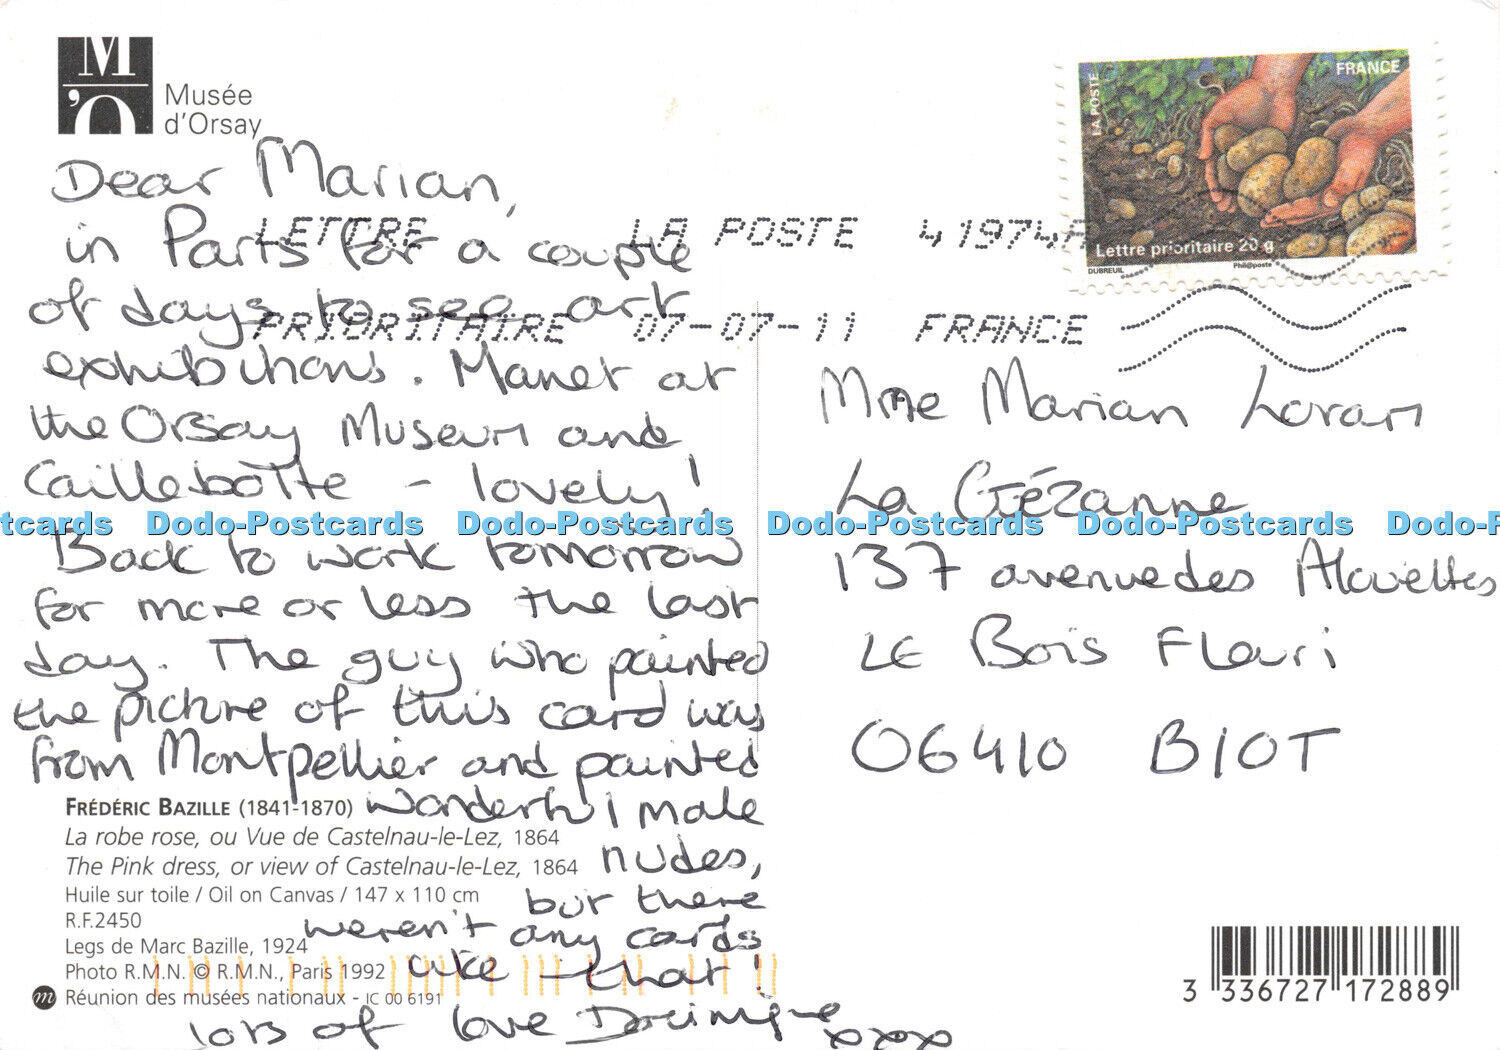 Musée
d'Orsay
FRANCE
LA POSTE
Lettre prioritaire 20 g
DUBREUIL
Phil@poste
LETTRE LA POSTE 41974A
PRIORITAIRE 07-07-11 FRANCE
Dear Marian,
in Paris for a couple
of days to see art
exhibitions. Manet at
the Orsay Museum and
Caillebotte – lovely!
Back to work tomorrow
for more or less the last
day. The guy who painted
the picture of this card was
from Montpellier and painted
wonderful male
nudes,
but there
weren't any cards
like that!
lots of love Dominique
xxxx
Mme Marian Loran
La
137 avenue des Alouettes
LE Bois Fleuri
06410 BIOT
FRÉDÉRIC BAZILLE (1841-1870)
La robe rose, ou Vue de Castelnau-le-Lez, 1864
The Pink dress, or view of Castelnau-le-Lez, 1864
Huile sur toile / Oil on Canvas / 147 x 110 cm
R.F.2450
Legs de Marc Bazille, 1924
Photo R.M.N. © R.M.N., Paris 1992
m Réunion des musées nationaux - IC 00 6191
3 336727 172889
tcards Dodo-Postcards Dodo-Postcards Dodo-Postcards Dodo-P